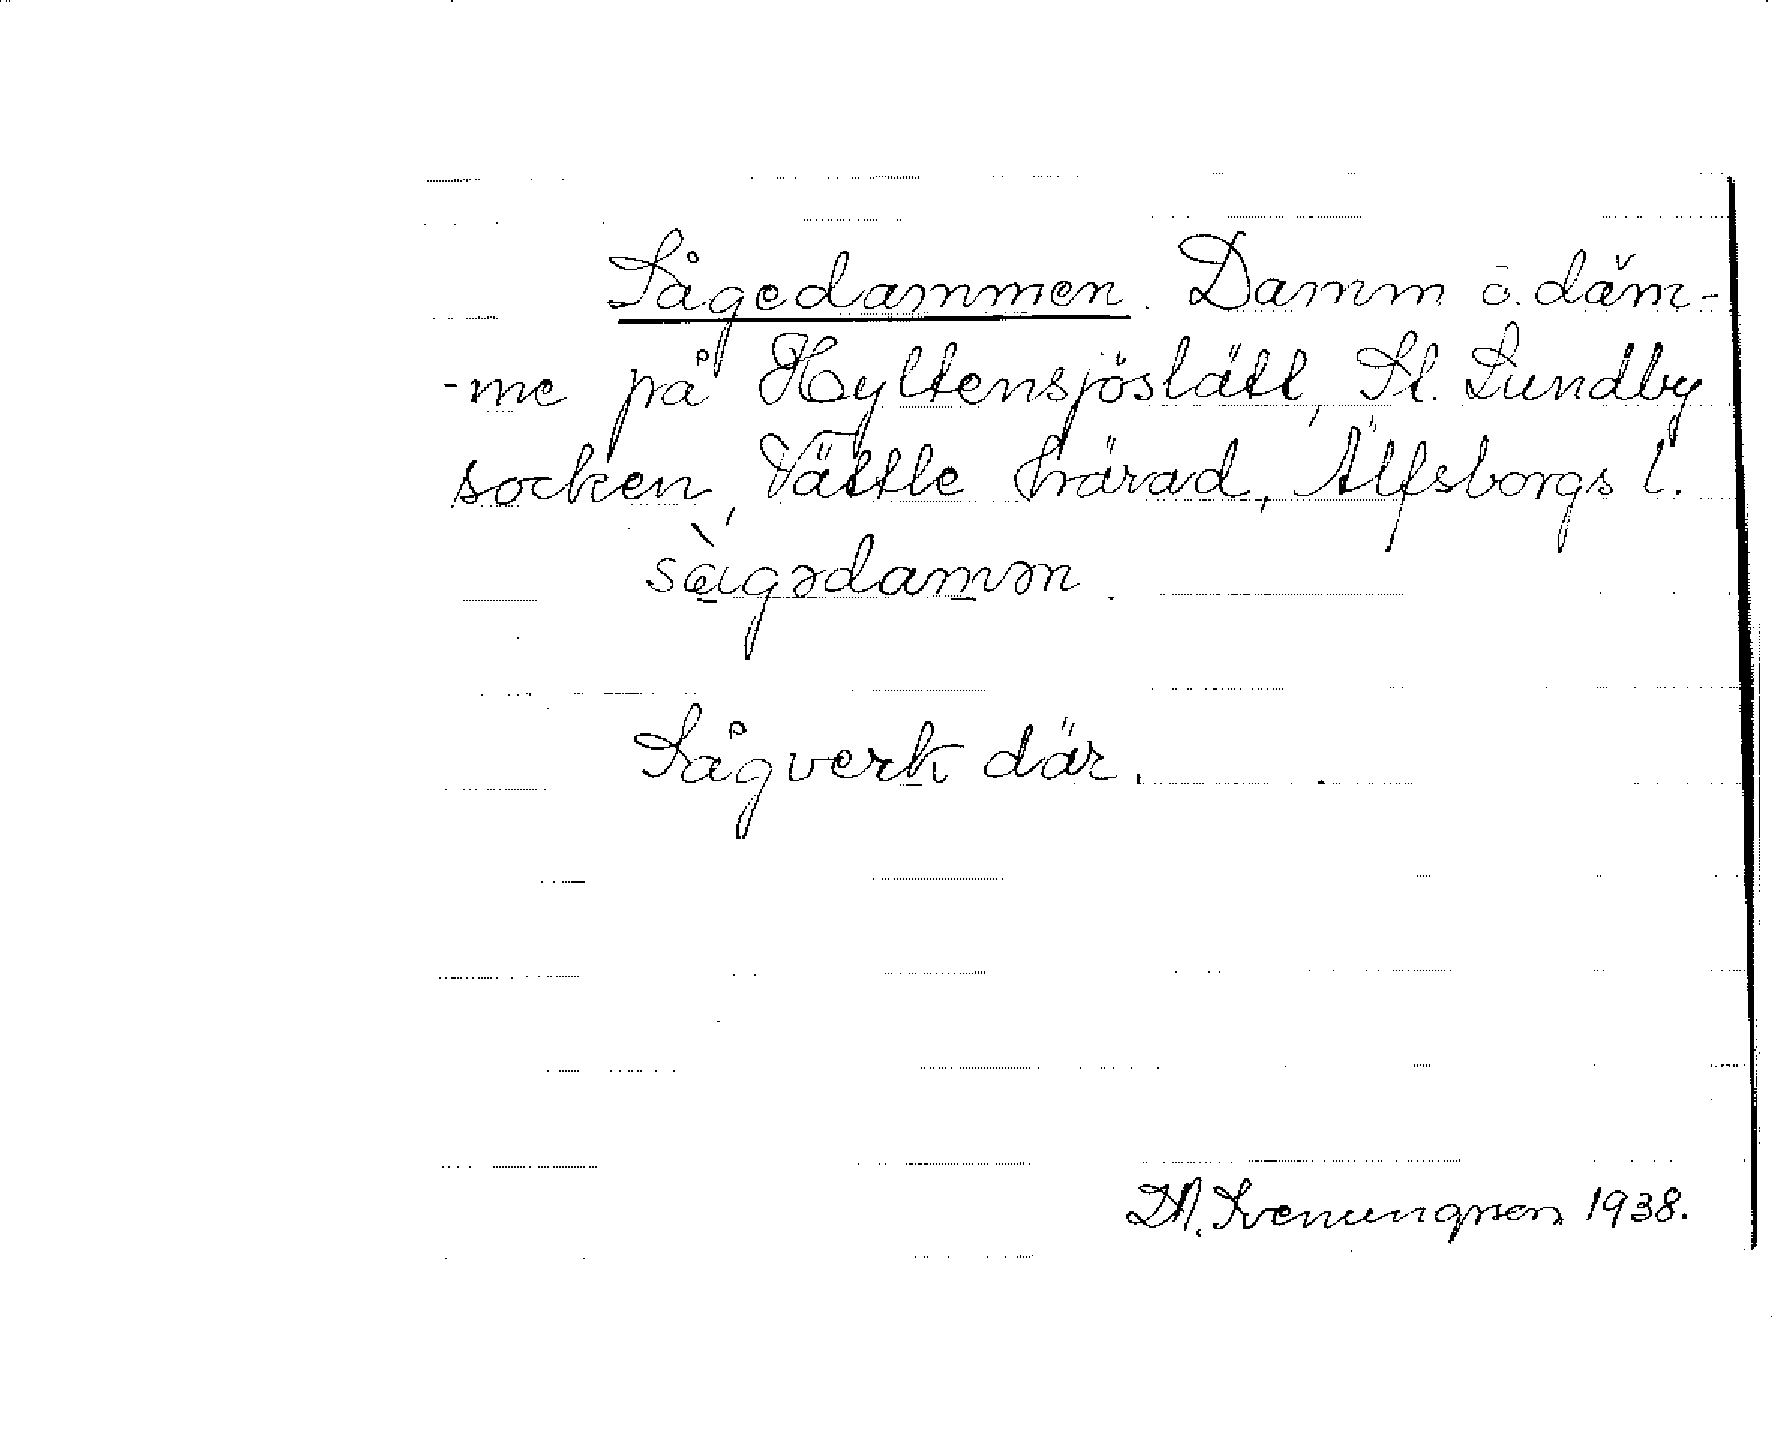 Sågedammen. Damm o. däm-
-me på Hyltensjöslätt, St. Lundby
socken, Vättle härad, Älfsborgs l.
Sågverk där.
Svenungsson 1938.